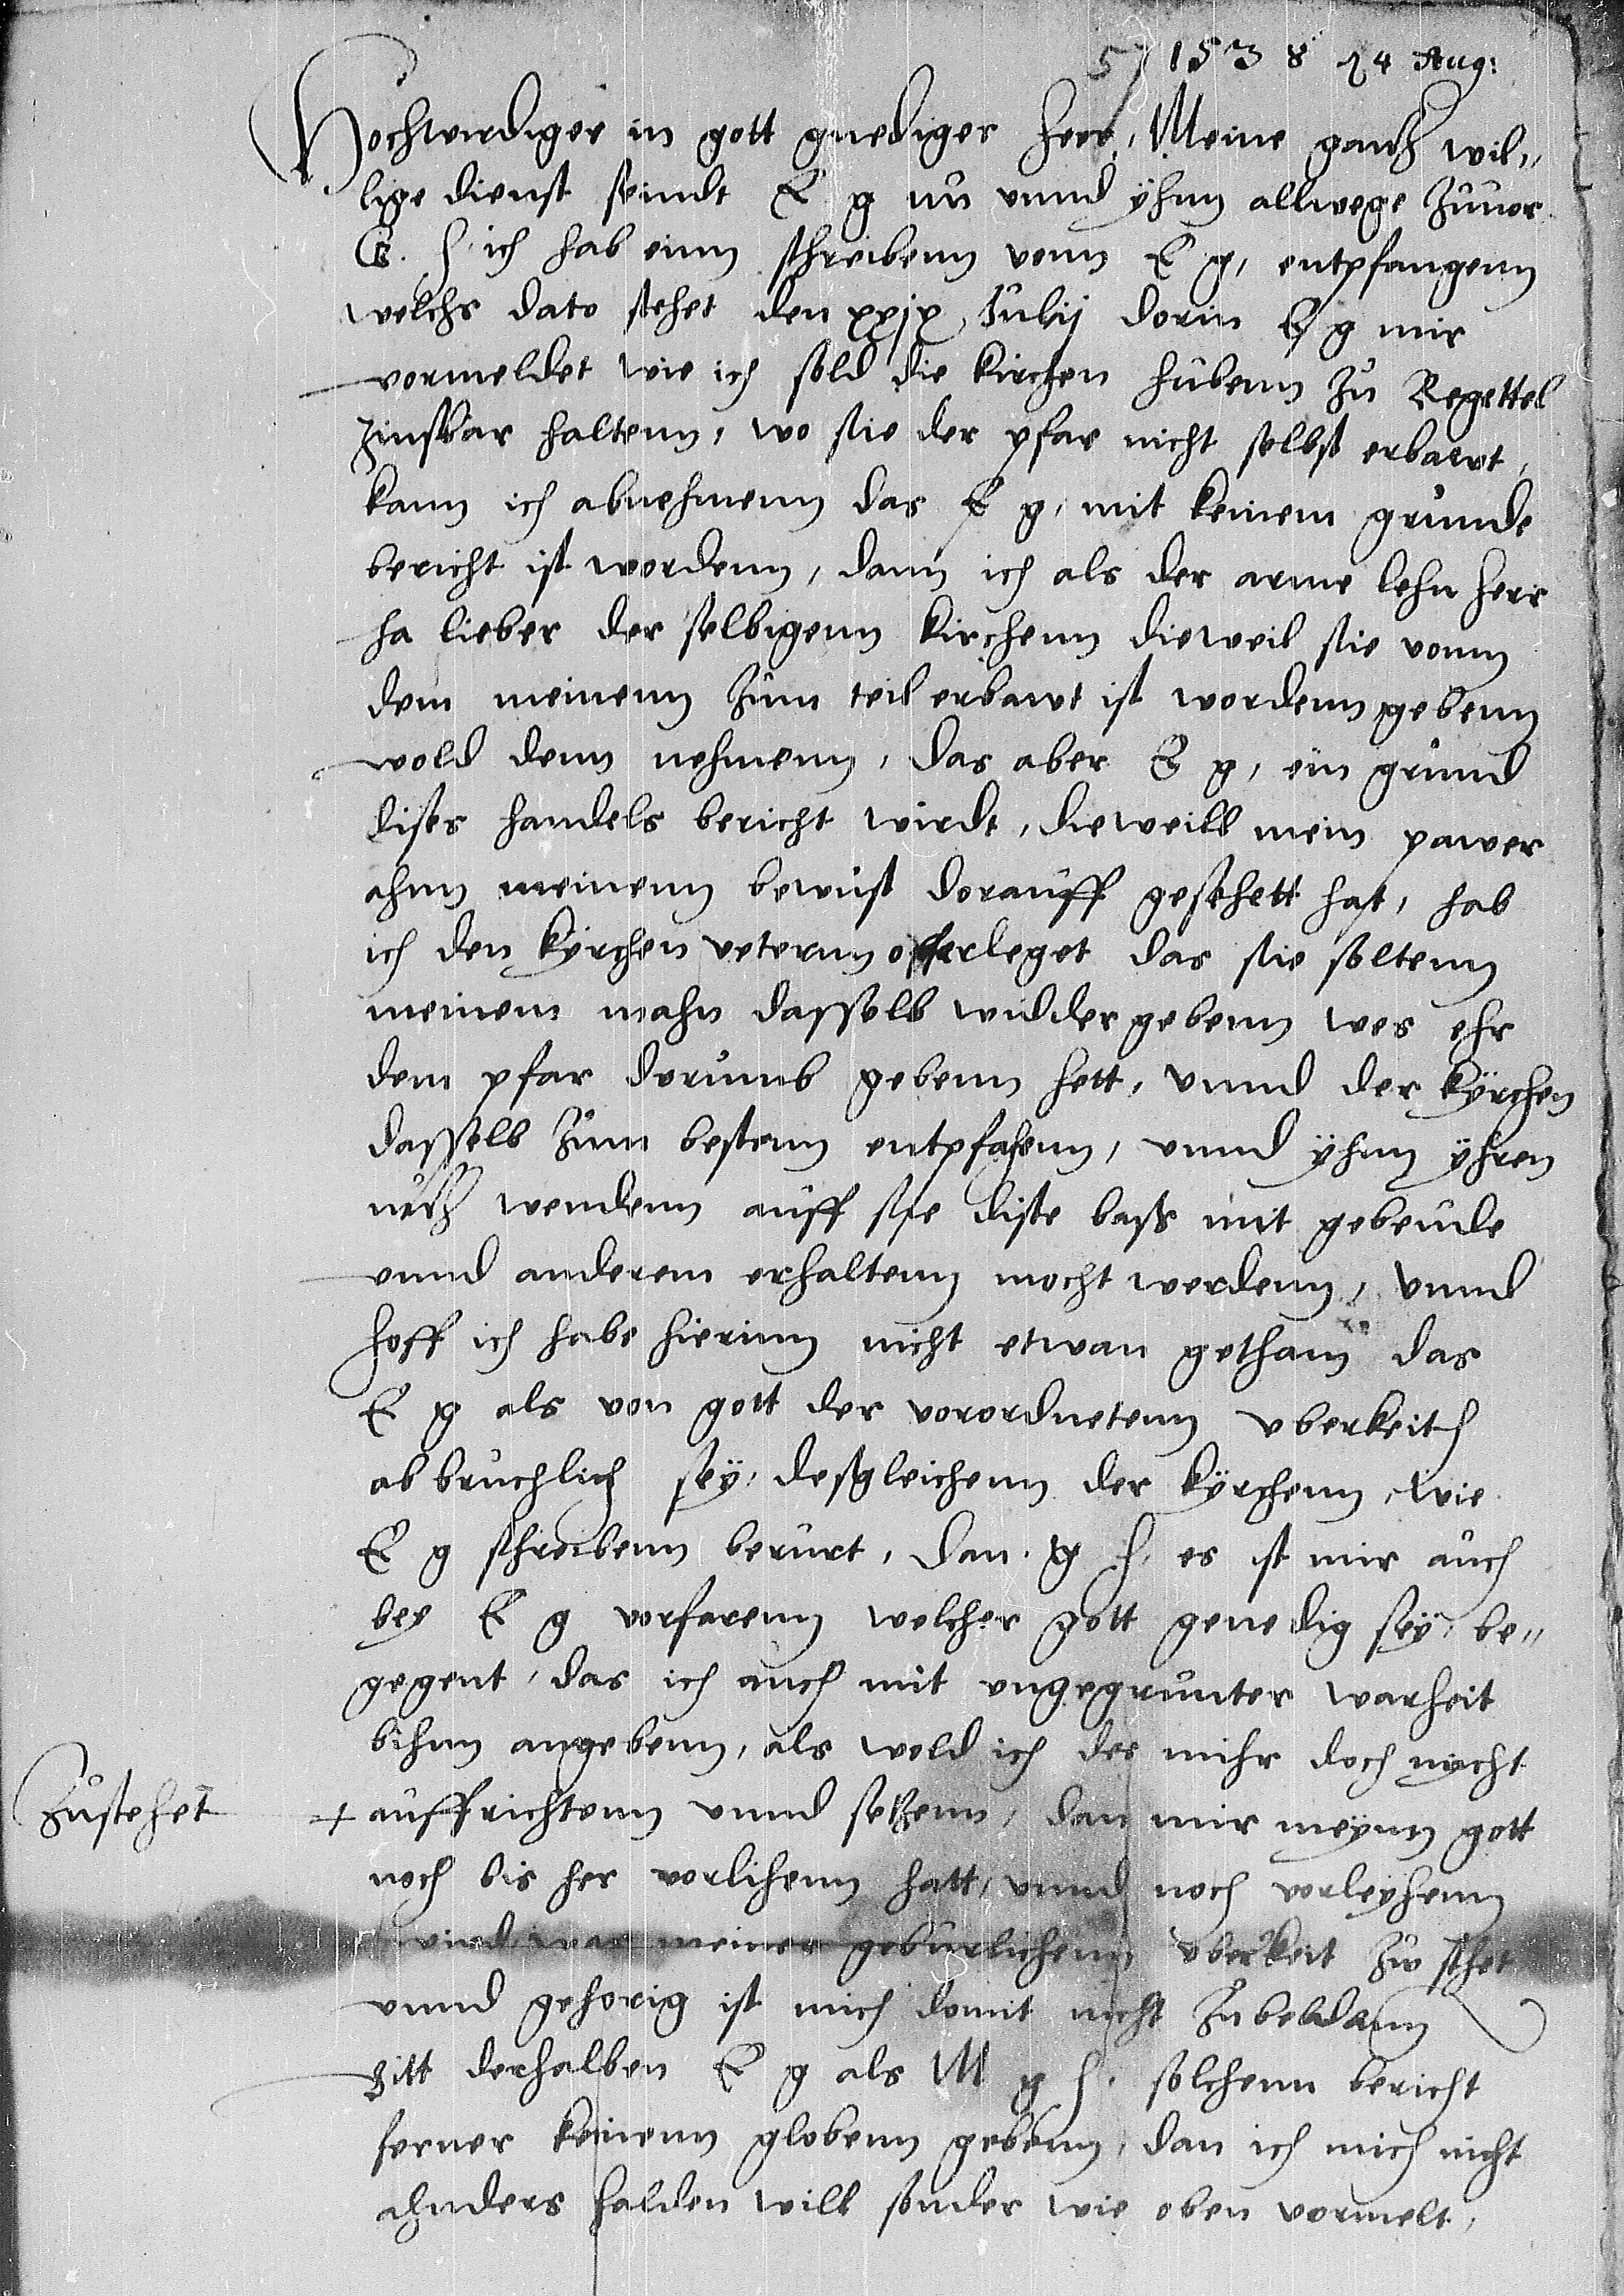 57 1538 24 Aug:
Hochwirdiger in gott gnediger herr, Meine gantz wil„
lige dienst seindt E g nu unnd yhnn allwege zuuor
G. h ich hab einn schreibenn vonn E g, entpfangenn
welchs dato stehet den xxjx Julij dorin E g mir
vormeldet wie ich sold die kirchen hubenn zu Regettel
zinsbar haltenn, wo sie der pfar nicht selbst erbawt,
kann ich abnehmenn das E g, mit keinem grunde
bericht ist wordenn, dann ich als der arme lehn herr
ha lieber der selbigenn kirchenn dieweil sie vonn
dem meinenn zum teil erbawt ist wordenn gebenn
wold denn nehmenn, das aber E g, ein grund
dises handels bericht wirdt, dieweill mein pawer
ahnn meinenn bewust dorauff gesehett hat, hab
ich den kyrchen veternn offerleget das sie soltenn
meinem mahn dasselb widder gebenn wes ehr
dem pfar dorumb gebenn hett, vnnd der kyrchen
dasselb zum bestenn entpfahenn, vnnd yhnn yhren
nutz wendenn auff sie diste bass mit gebeude
vnnd anderem erhaltenn mocht werdenn, vnnd
hoff ich habe hierinn nicht etwan gethann das
E g als von gott der vorordnetenn vberkeith
abbruchlich sey, desgleichenn der kyrchenn, wie
E g schreibenn berurt, dan. g h, es ist mir auch
bey E g vorfarenn welcher gott genedig sey, be„
gegent, das ich auch mit vngegrunter warheit
bihnn angebenn, als wold ich des mihr doch nycht
zustehet + auffrichtenn vnnd setzenn, dan mir meynn gott
noch bis her vorlihenn hatt, vnnd noch vorleyhenn
wird, was meiner geburlichenn vberkeit zw sthet
vnnd gehorig ist mich domit nicht zubeladenn
Bitt derhalben E g als M g h. solchenn bericht
ferner keinenn globenn gebenn, dan ich mich nicht
anders halden will sonder wie oben vormelt,